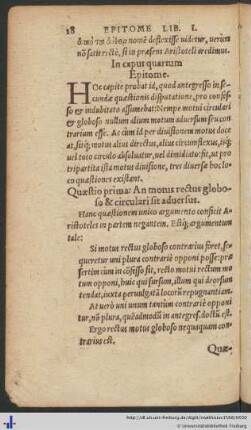 28 EPITOME LIB. I.
ἀπὸ τῶ nomẽ destexisse videtur, verùm
nõ satis rectè, si in præsent Aristoteli credimus.
In caput quartum
Epitome.
HOc capite probat id, quod antegresso in se-
cundæ quæstionis disputatione, pro confes-
so & indubitato assumebat: Nempe motui circulari
& globoso nullum alium motum aduersum seu con-
trarium esse. Ac cùm id per diuisionem motus doce-
at, sitq; motus alius directus, alius circumflexus, isq;
uel toto circulo absoluatur, uel dimidiato: fit, ut pro
tripartita ista motus diuisione, tres diuersæ hoc lo-
co quæstiones existant.
Quæstio prima: An motus rectus globo-
so & circulari sit aduersus.
Hanc quæstionem unico argumento conficit A-
ristoteles in partem negantem. Estq́; argumentum
tale:
Si motus rectus globoso contrarius foret, se-
queretur uni plura contrariè opponi posse: præ-
sertim cùm in cõfesso sit, recto motui rectum mo-
tum opponi, ut qui sursum, illum qui deorsum
tendat, iuxta peruulgatã locorũ repugnantiam.
At uerò uni unum tantùm contrariè opponi-
tur, nõ plura, quẽadmodũ in antegress. doctũ est.
Ergo rectus motus globoso nequaquam con-
trarius est.
Quæ-
http://dl.ub.uni-freiburg.de/diglit/
© Universitätsbibliothek Freiburg